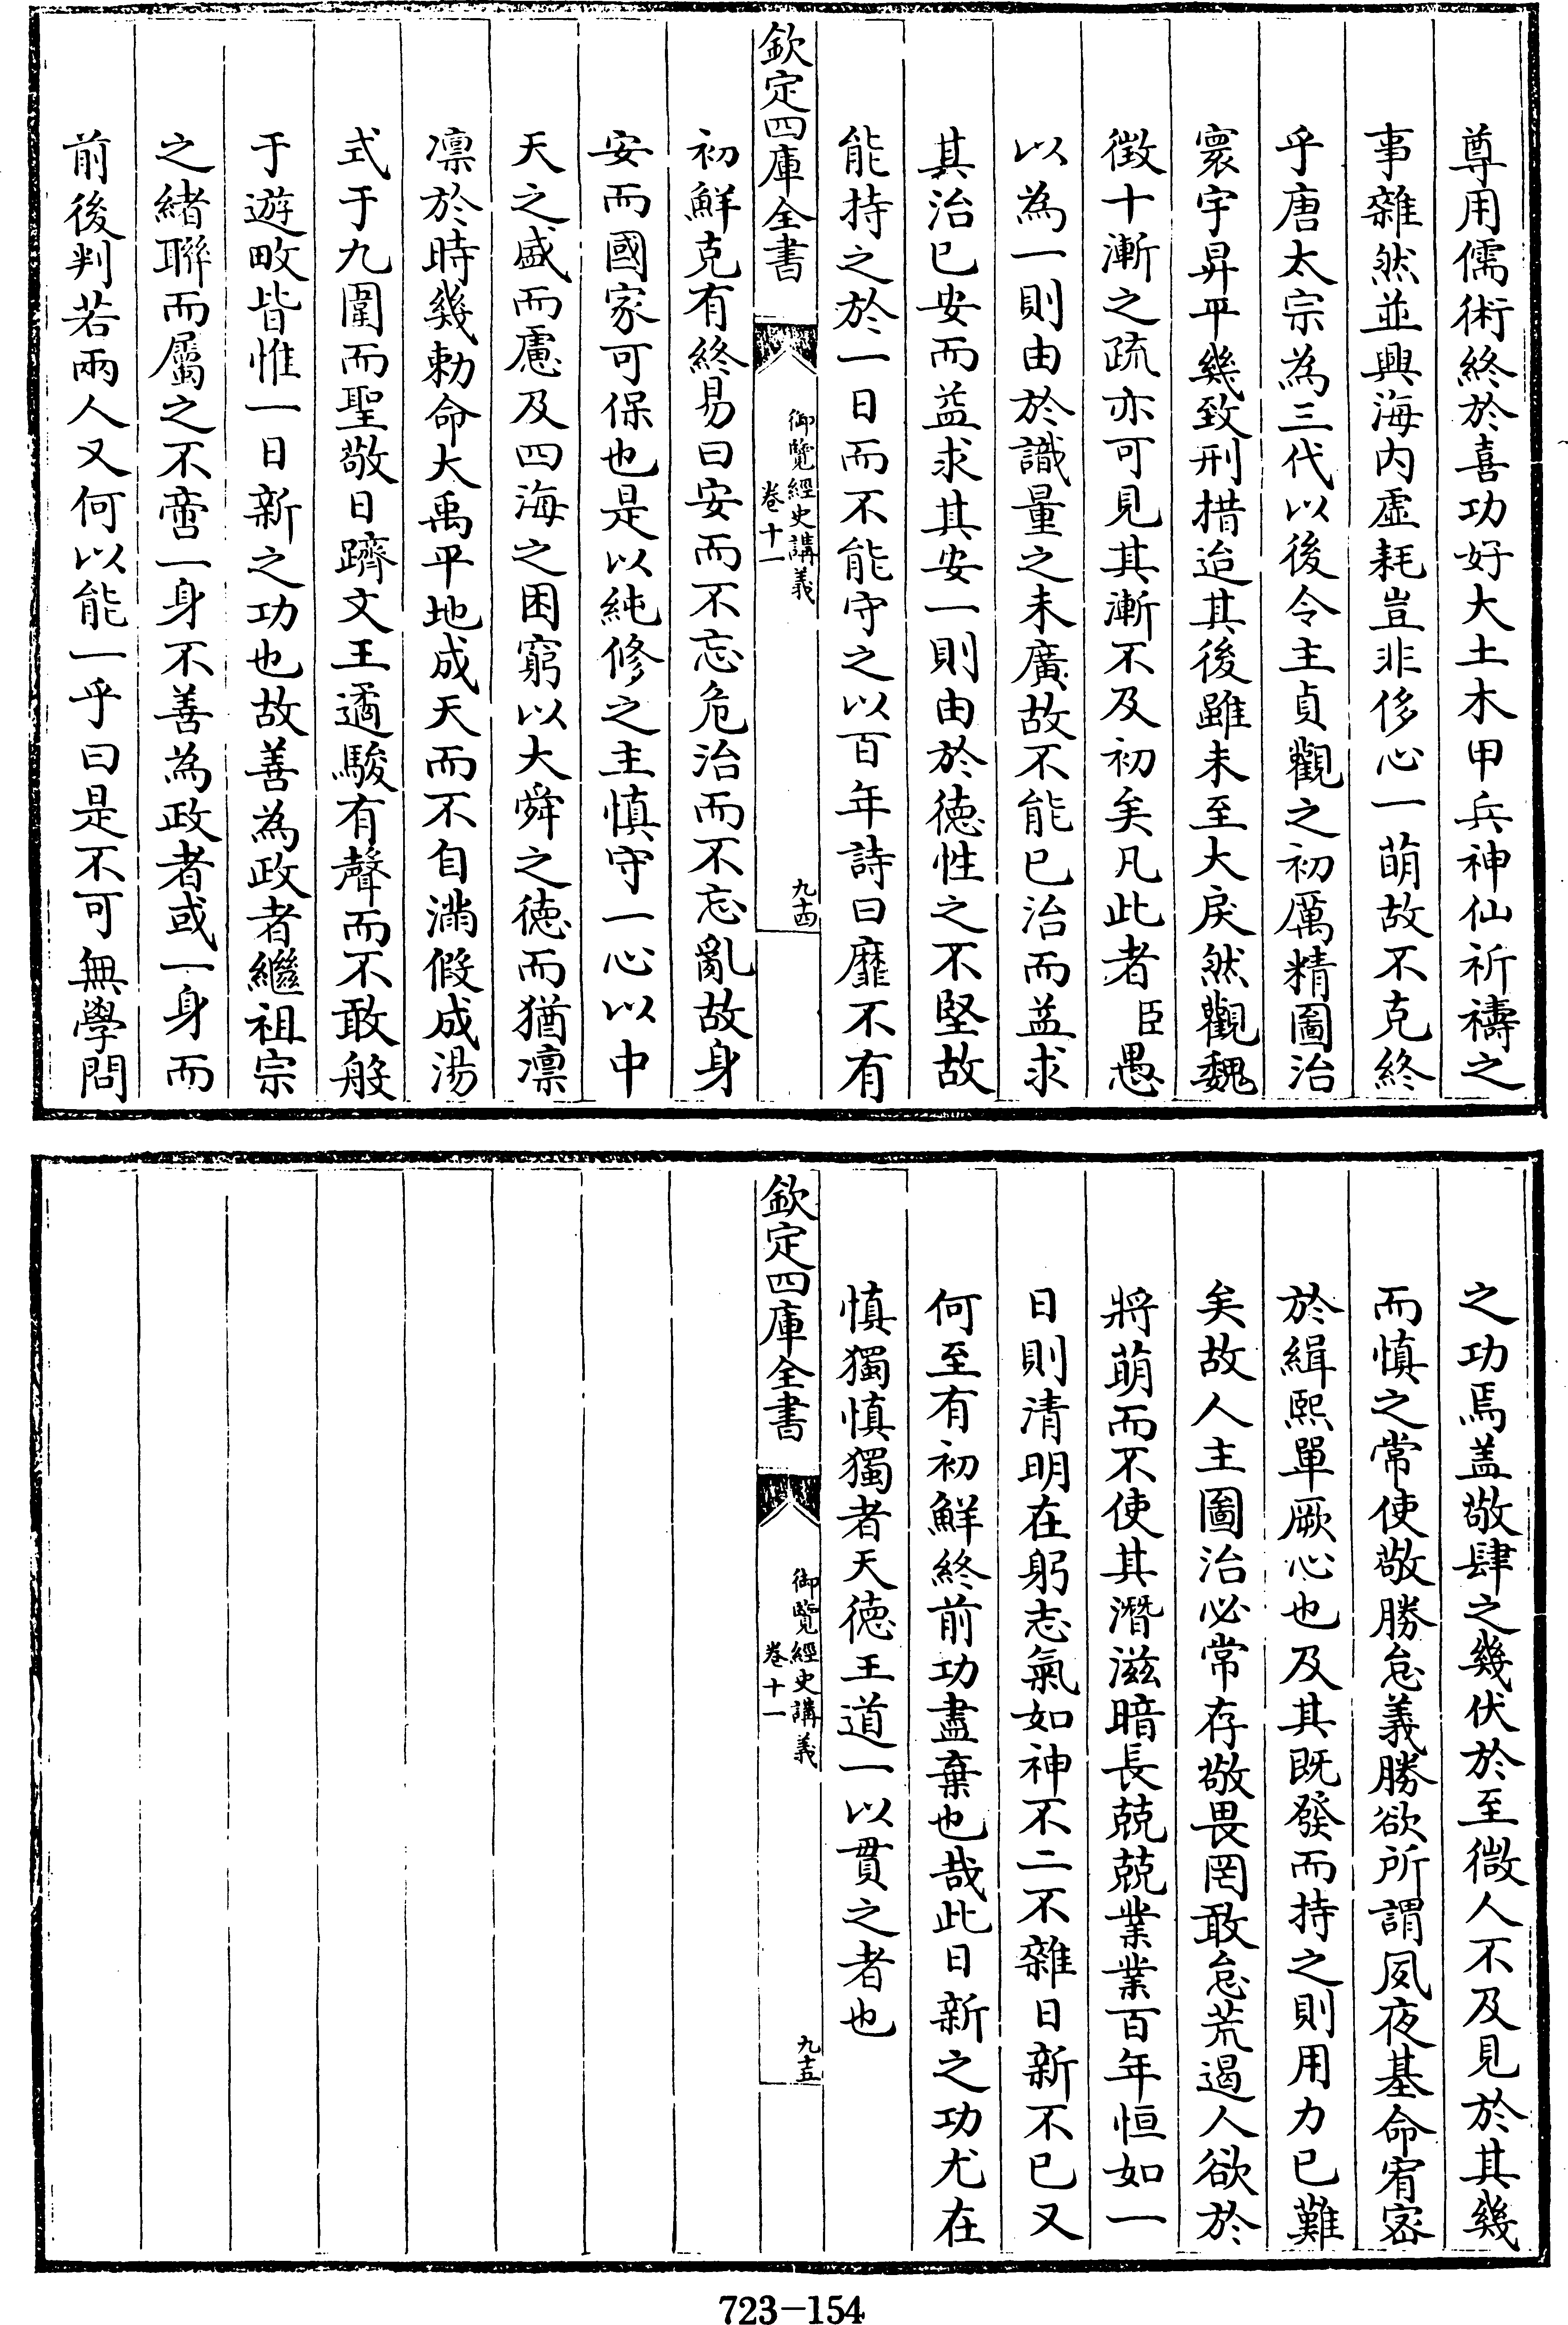 尊用儒術終於喜功好大土木甲兵神仙祈禱之
事雜然並興海内虛耗豈非侈心一萌故不克終
乎唐太宗為三代以後令主貞觀之初厲精圖治
寰宇昇平幾致刑措迨其後雖未至大戾然觀魏
徴十漸之疏亦可見其漸不及初矣凡此者臣愚
以為一則由於識量之未廣故不能已治而益求
其治已安而益求其安一則由於德性之不堅故
能持之於一日而不能守之以百年詩曰靡不有
欽定四庫全書
御覽經史講義
卷十一
九十四
初鮮克有終易曰安而不忘危治而不忘亂故身
安而國家可保也是以純修之主慎守一心以中
天之盛而慮及四海之困窮以大舜之德而猶凛
凛於時幾勅命大禹平地成天而不自滿假成湯
式于九圍而聖敬日躋文王遹駿有聲而不敢般
于遊畋皆惟一日新之功也故善為政者繼祖宗
之緒聯而屬之不啻一身不善為政者或一身而
前後判若兩人又何以能一乎曰是不可無學問
之功焉盖敬肆之幾伏於至微人不及見於其幾
而慎之常使敬勝怠義勝欲所謂夙夜基命宥密
於緝熙單厥心也及其既發而持之則用力已難
矣故人主圖治必常存敬畏罔敢怠荒遏人欲於
將萌而不使其潛滋暗長兢兢業業百年恒如一
日則清明在躬志氣如神不二不雜日新不已又
何至有初鮮終前功盡棄也哉此日新之功尤在
慎獨慎獨者天德王道一以貫之者也
欽定四庫全書
御覽經史講義
卷十一
九十五
723-154